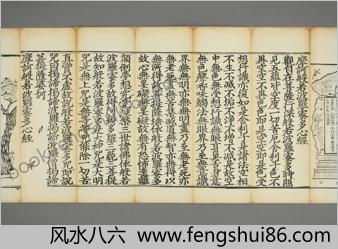 摩訶般若波羅蜜多心經
觀自在菩薩行深般若波羅蜜多時照
見五蘊皆空度一切苦厄舍利子色不
異空空不異色色即是空空即是色受
想行識亦復如是舍利子是諸法空相
不生不滅不垢不淨不增不減是故空
中無色無受想行識無眼耳鼻舌身意
無色聲香味觸法無眼界乃至無意識
界無無明亦無無明盡乃至無老死亦
無老死盡無苦集滅道無智亦無得以
無所得故菩提薩埵依般若波羅蜜多
故心無罣礙無罣礙故無有恐怖遠離
顛倒夢想究竟涅槃三世諸佛依般若
波羅蜜多故得阿耨多羅三藐三菩提
故知般若波羅蜜多是大神咒是大明
咒是無上咒是無等等咒能除一切苦
真實不虛故說般若波羅蜜多咒即說
咒曰揭諦揭諦波羅揭諦波羅僧揭諦
菩提薩婆訶
摩訶般若波羅蜜多心經
风水八六 www.fengshui86.com